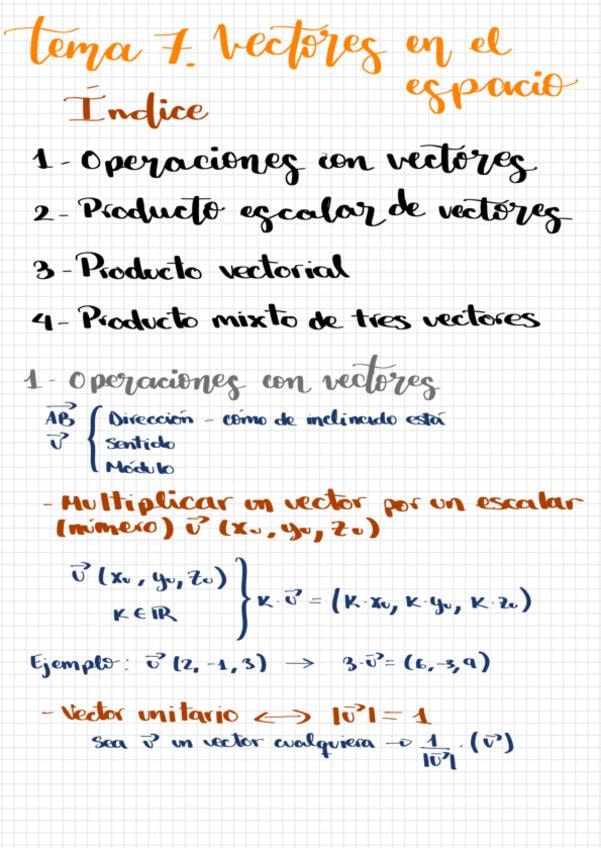 tema 7. Vectores en el
espacio
Índice
1 - Operaciones con vectores
2 - Producto escalar de vectores
3 - Producto vectorial
4 - Producto mixto de tres vectores
1 - Operaciones con vectores
AB⃗ { Dirección - cómo de inclinado está
v⃗ Sentido
Módulo
- Multiplicar un vector por un escalar
(número) v⃗ (xᵥ, yᵥ, zᵥ)
v⃗ (xᵥ, yᵥ, zᵥ)
K ∈ ℝ } K · v⃗ = (K · xᵥ, K · yᵥ, K · zᵥ)
Ejemplo: v⃗ (2, -1, 3) → 3 · v⃗ = (6, -3, 9)
- Vector unitario ⟷ |v⃗| = 1
Sea v⃗ un vector cualquiera → 1/|v⃗| · (v⃗)